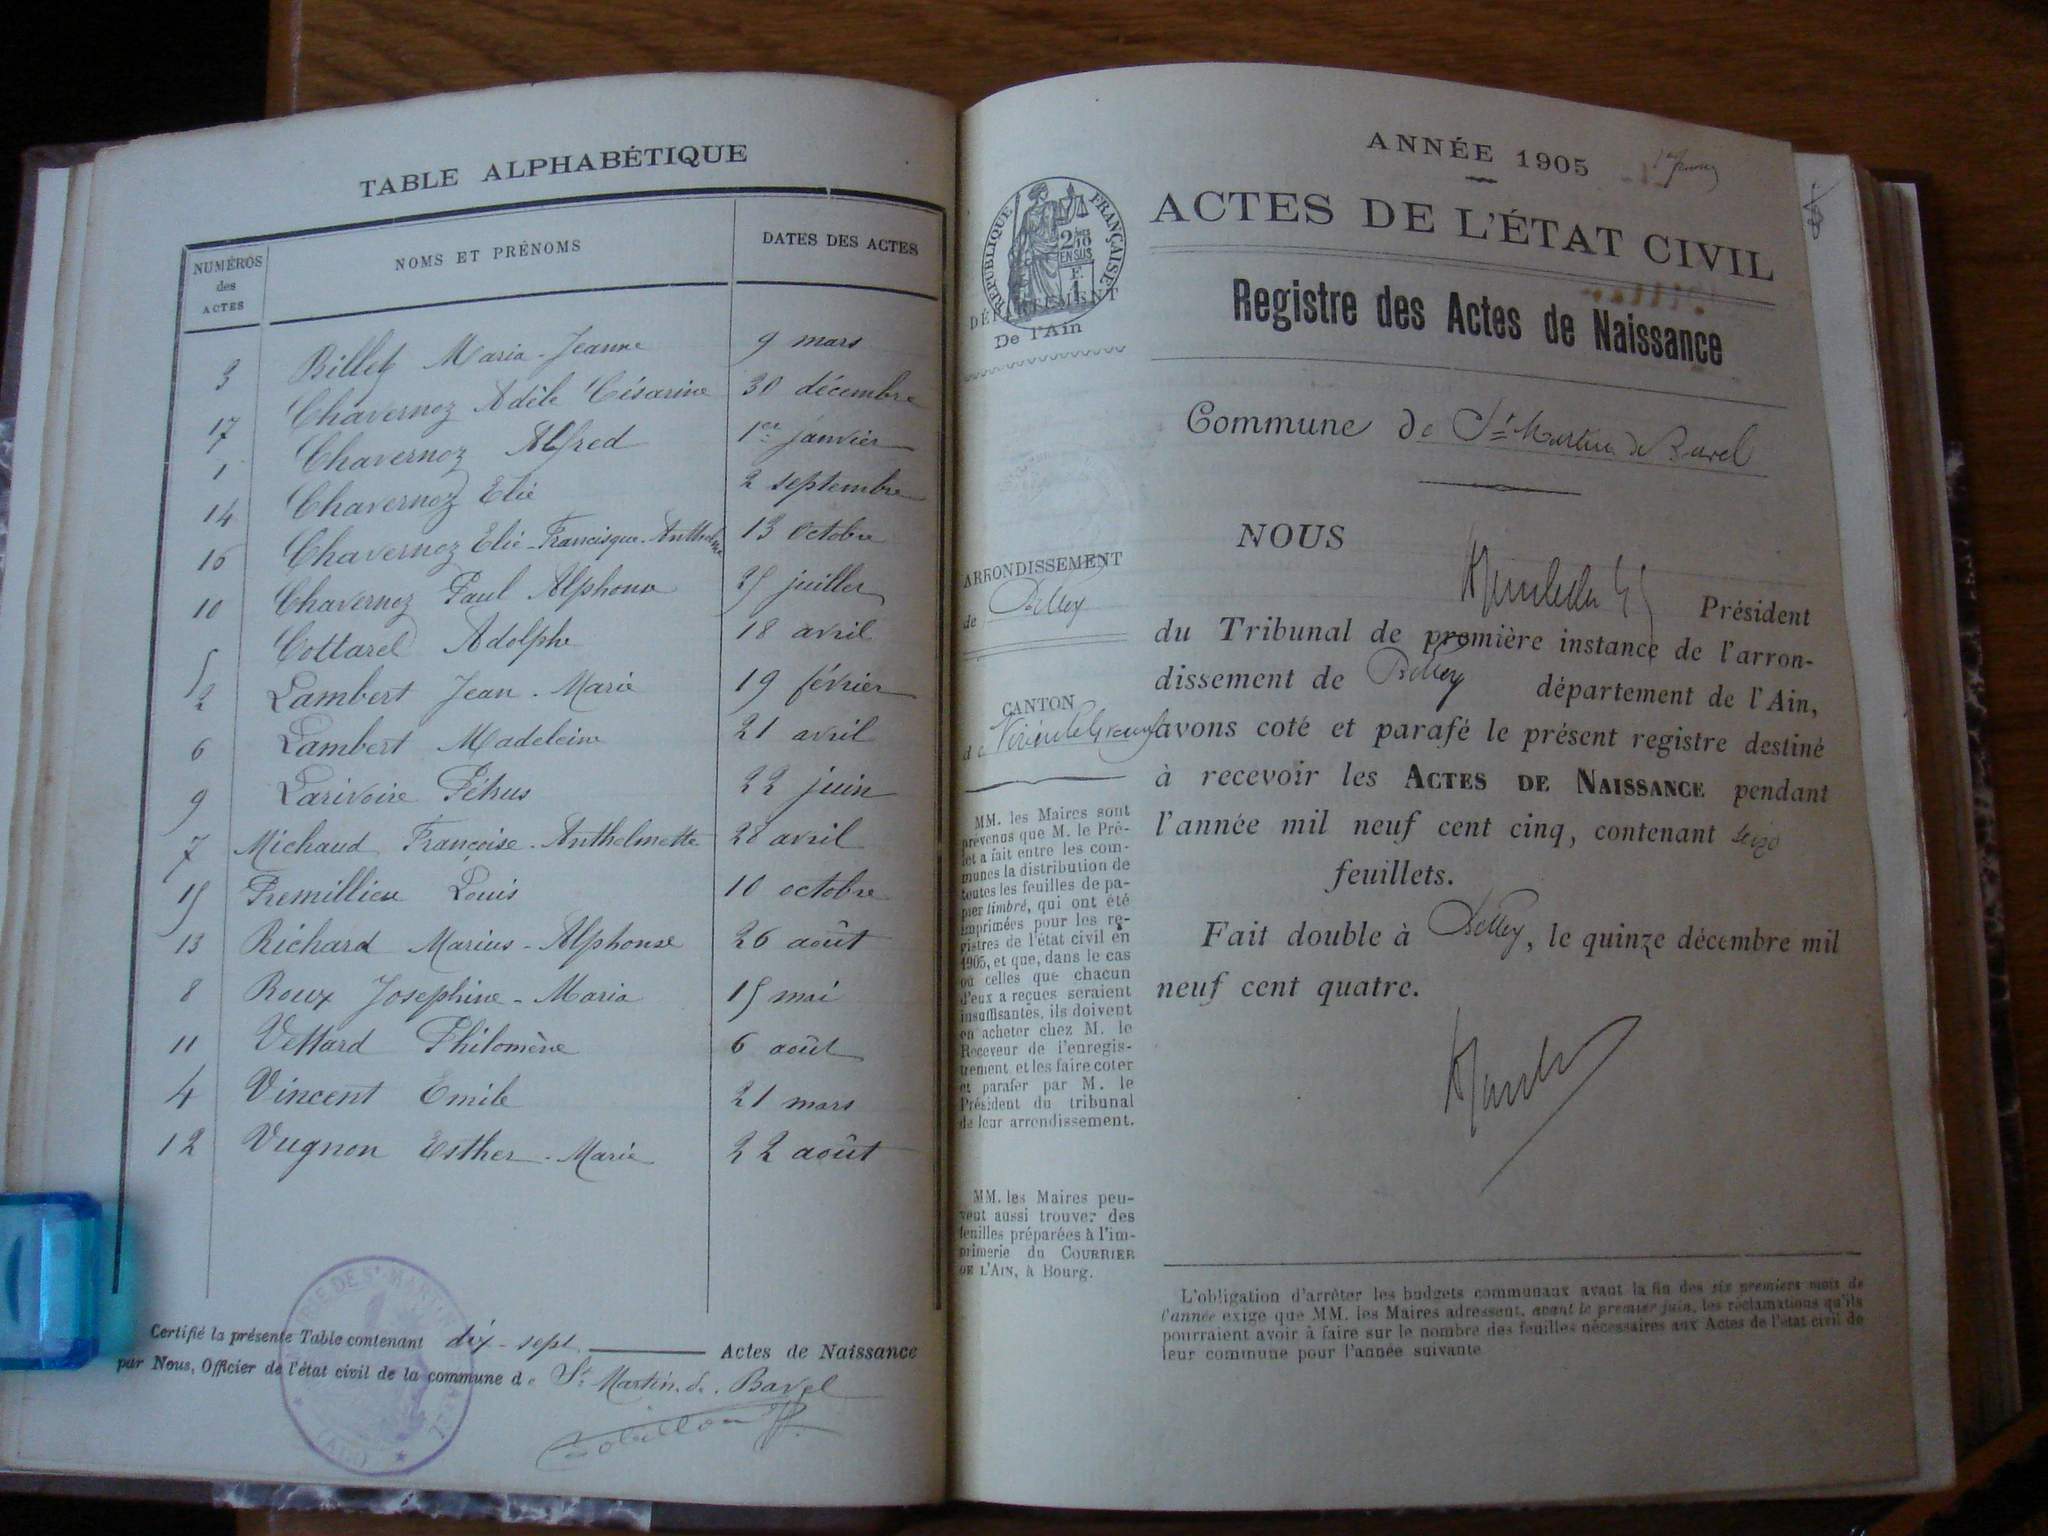 TABLE ALPHABÉTIQUE
NUMÉROS des ACTES NOMS ET PRÉNOMS DATES DES ACTES
3 Billet Maria-Jeanne 9 mars
17 Chavernoz Adèle Césarine 30 décembre
1 Chavernoz Alfred 1er janvier
14 Chavernoz Elie 2 septembre
16 Chavernoz Elie-Francisque-Anthelme 13 octobre
10 Chavernoz Paul Alphonse 25 juillet
5 Cottarel Adolphe 18 avril
2 Lambert Jean-Marie 19 février
6 Lambert Madeleine 21 avril
9 Larivoire 22 juin
7 Michaud Françoise-Anthelmette 28 avril
15 Premillieu Louis 10 octobre
13 Richard Marius-Alphonse 26 août
8 Roux Josephine-Maria 15 mai
11 Vettard Philomène 6 août
4 Vincent Emile 21 mars
12 Vugnon Esther-Marie 22 août
Certifié la présente Table contenant dix-sept Actes de Naissance
par Nous, Officier de l'état civil de la commune de St Martin-de-Bavel
MAIRIE DE ST MARTIN DE BAVEL
(AIN)
ANNÉE 1905
RÉPUBLIQUE FRANÇAISE
2/10 EN SUS
F. 1
DÉPARTEMENT
De l'Ain
ACTES DE L'ÉTAT CIVIL
Registre des Actes de Naissance
Commune de St Martin de Bavel
ARRONDISSEMENT
de Belley
CANTON
de Virieu le Grand
MM. les Maires sont
prévenus que M. le Pré-
fet a fait entre les com-
munes la distribution de
toutes les feuilles de pa-
pier timbré, qui ont été
imprimées pour les re-
gistres de l'état civil en
1905, et que, dans le cas
où celles que chacun
d'eux a reçues seraient
insuffisantes, ils doivent
en acheter chez M. le
Receveur de l'enregis-
trement, et les faire coter
et parafer par M. le
Président du tribunal
de leur arrondissement.
MM. les Maires peu-
vent aussi trouver des
feuilles préparées à l'im-
primerie du COURRIER
DE L'AIN, à Bourg.
NOUS
Président
du Tribunal de première instance de l'arron-
dissement de Belley département de l'Ain,
avons coté et parafé le présent registre destiné
à recevoir les ACTES DE NAISSANCE pendant
l'année mil neuf cent cinq, contenant seize
feuillets.
Fait double à Belley, le quinze décembre mil
neuf cent quatre.
L'obligation d'arrêter les budgets communaux avant la fin des six premiers mois de
l'année exige que MM. les Maires adressent, avant le premier juin, les réclamations qu'ils
pourraient avoir à faire sur le nombre des feuilles nécessaires aux Actes de l'état civil de
leur commune pour l'année suivante